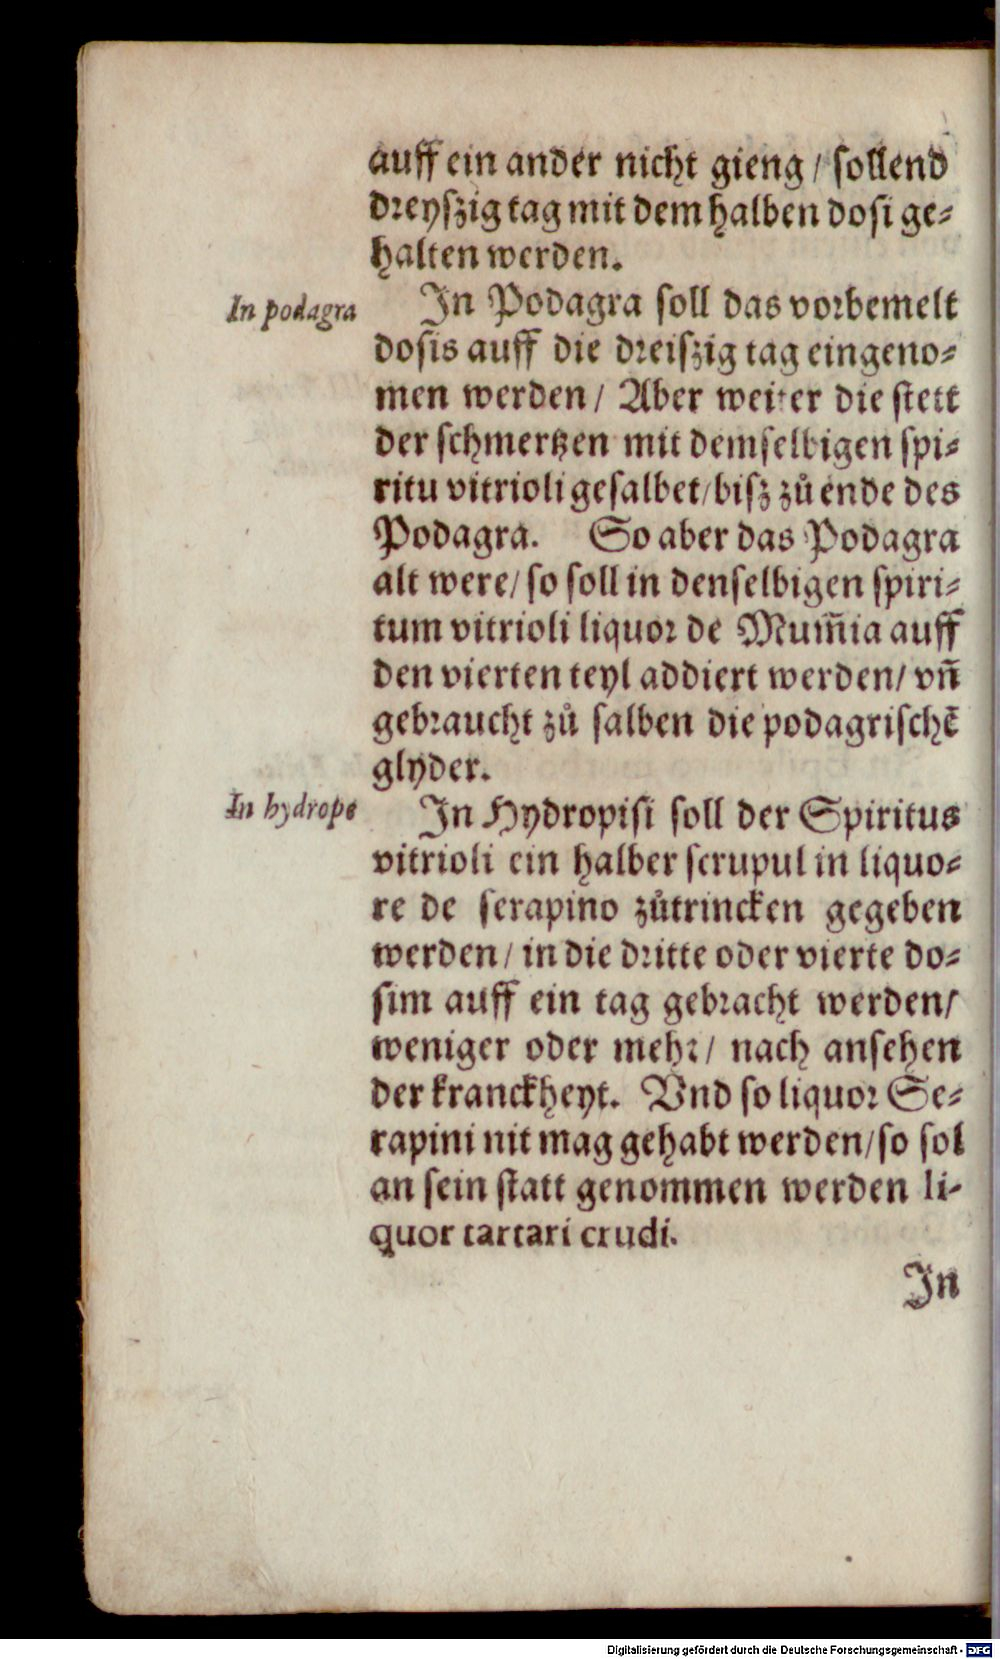 auff ein ander nicht gieng / sollend
dreyszig tag mit dem halben dosi ge⸗
halten werden.
In podagra
In Podagra soll das vorbemelt
dosis auff die dreiszig tag eingeno⸗
men werden / Aber weiter die stett
der schmertzen mit demselbigen spi⸗
ritu vitrioli gesalbet / bisz zů ende des
Podagra. So aber das Podagra
alt were / so soll in denselbigen spiri⸗
tum vitrioli liquor de Mum̃ia auff
den vierten teyl addiert werden / vñ
gebraucht zů salben die podagrischẽ
glyder.
In hydrope
In Hydropisi soll der Spiritus
vitrioli ein halber scrupul in liquo⸗
re de serapino zůtrincken gegeben
werden / in die dritte oder vierte do⸗
sim auff ein tag gebracht werden /
weniger oder mehr / nach ansehen
der kranckheyt. Vnd so liquor Se⸗
rapini nit mag gehabt werden / so sol
an sein statt genommen werden li⸗
quor tartari crudi.
In
Digitalisierung gefördert durch die Deutsche Forschungsgemeinschaft - DFG